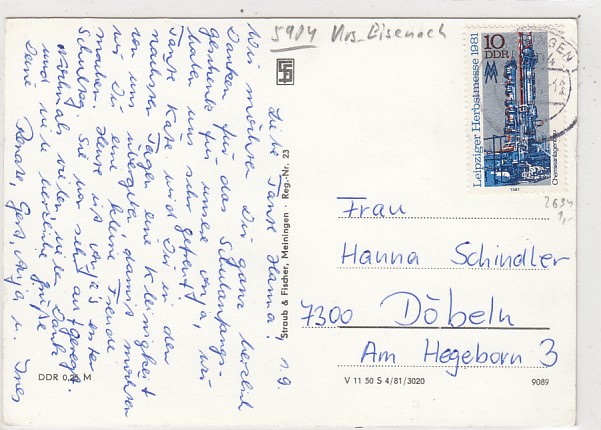 5904 Krs. Eisenach
Liebe Tante Hanna, 1.9.
Wir möchten Dir ganz herzlich
Danken für das Schulanfangs-
geschenk für unsere Anja, wir
haben uns sehr gefreut.
Tante Käte wird Dir in den
nächsten Tagen eine Kleinigkeit
von uns übergeben damit möchten
wir Dir eine kleine Freude
machen. Heute ist Anja's erster
Schultag. Sie war sehr aufgeregt.
Nochmal vielen, vielen Dank
und viele herzliche Grüße
Deine Renate, Gert, Anja u. Ines
DDR 0,25 M
Straub & Fischer, Meiningen · Reg.-Nr. 23
Leipziger Herbstmesse 1981
10
DDR
MM
Chemieanlagenbau
1981
2634
1,-
Frau
Hanna Schindler
7300 Döbeln
Am Hegeborn 3
V 11 50 S 4/81/3020
9089